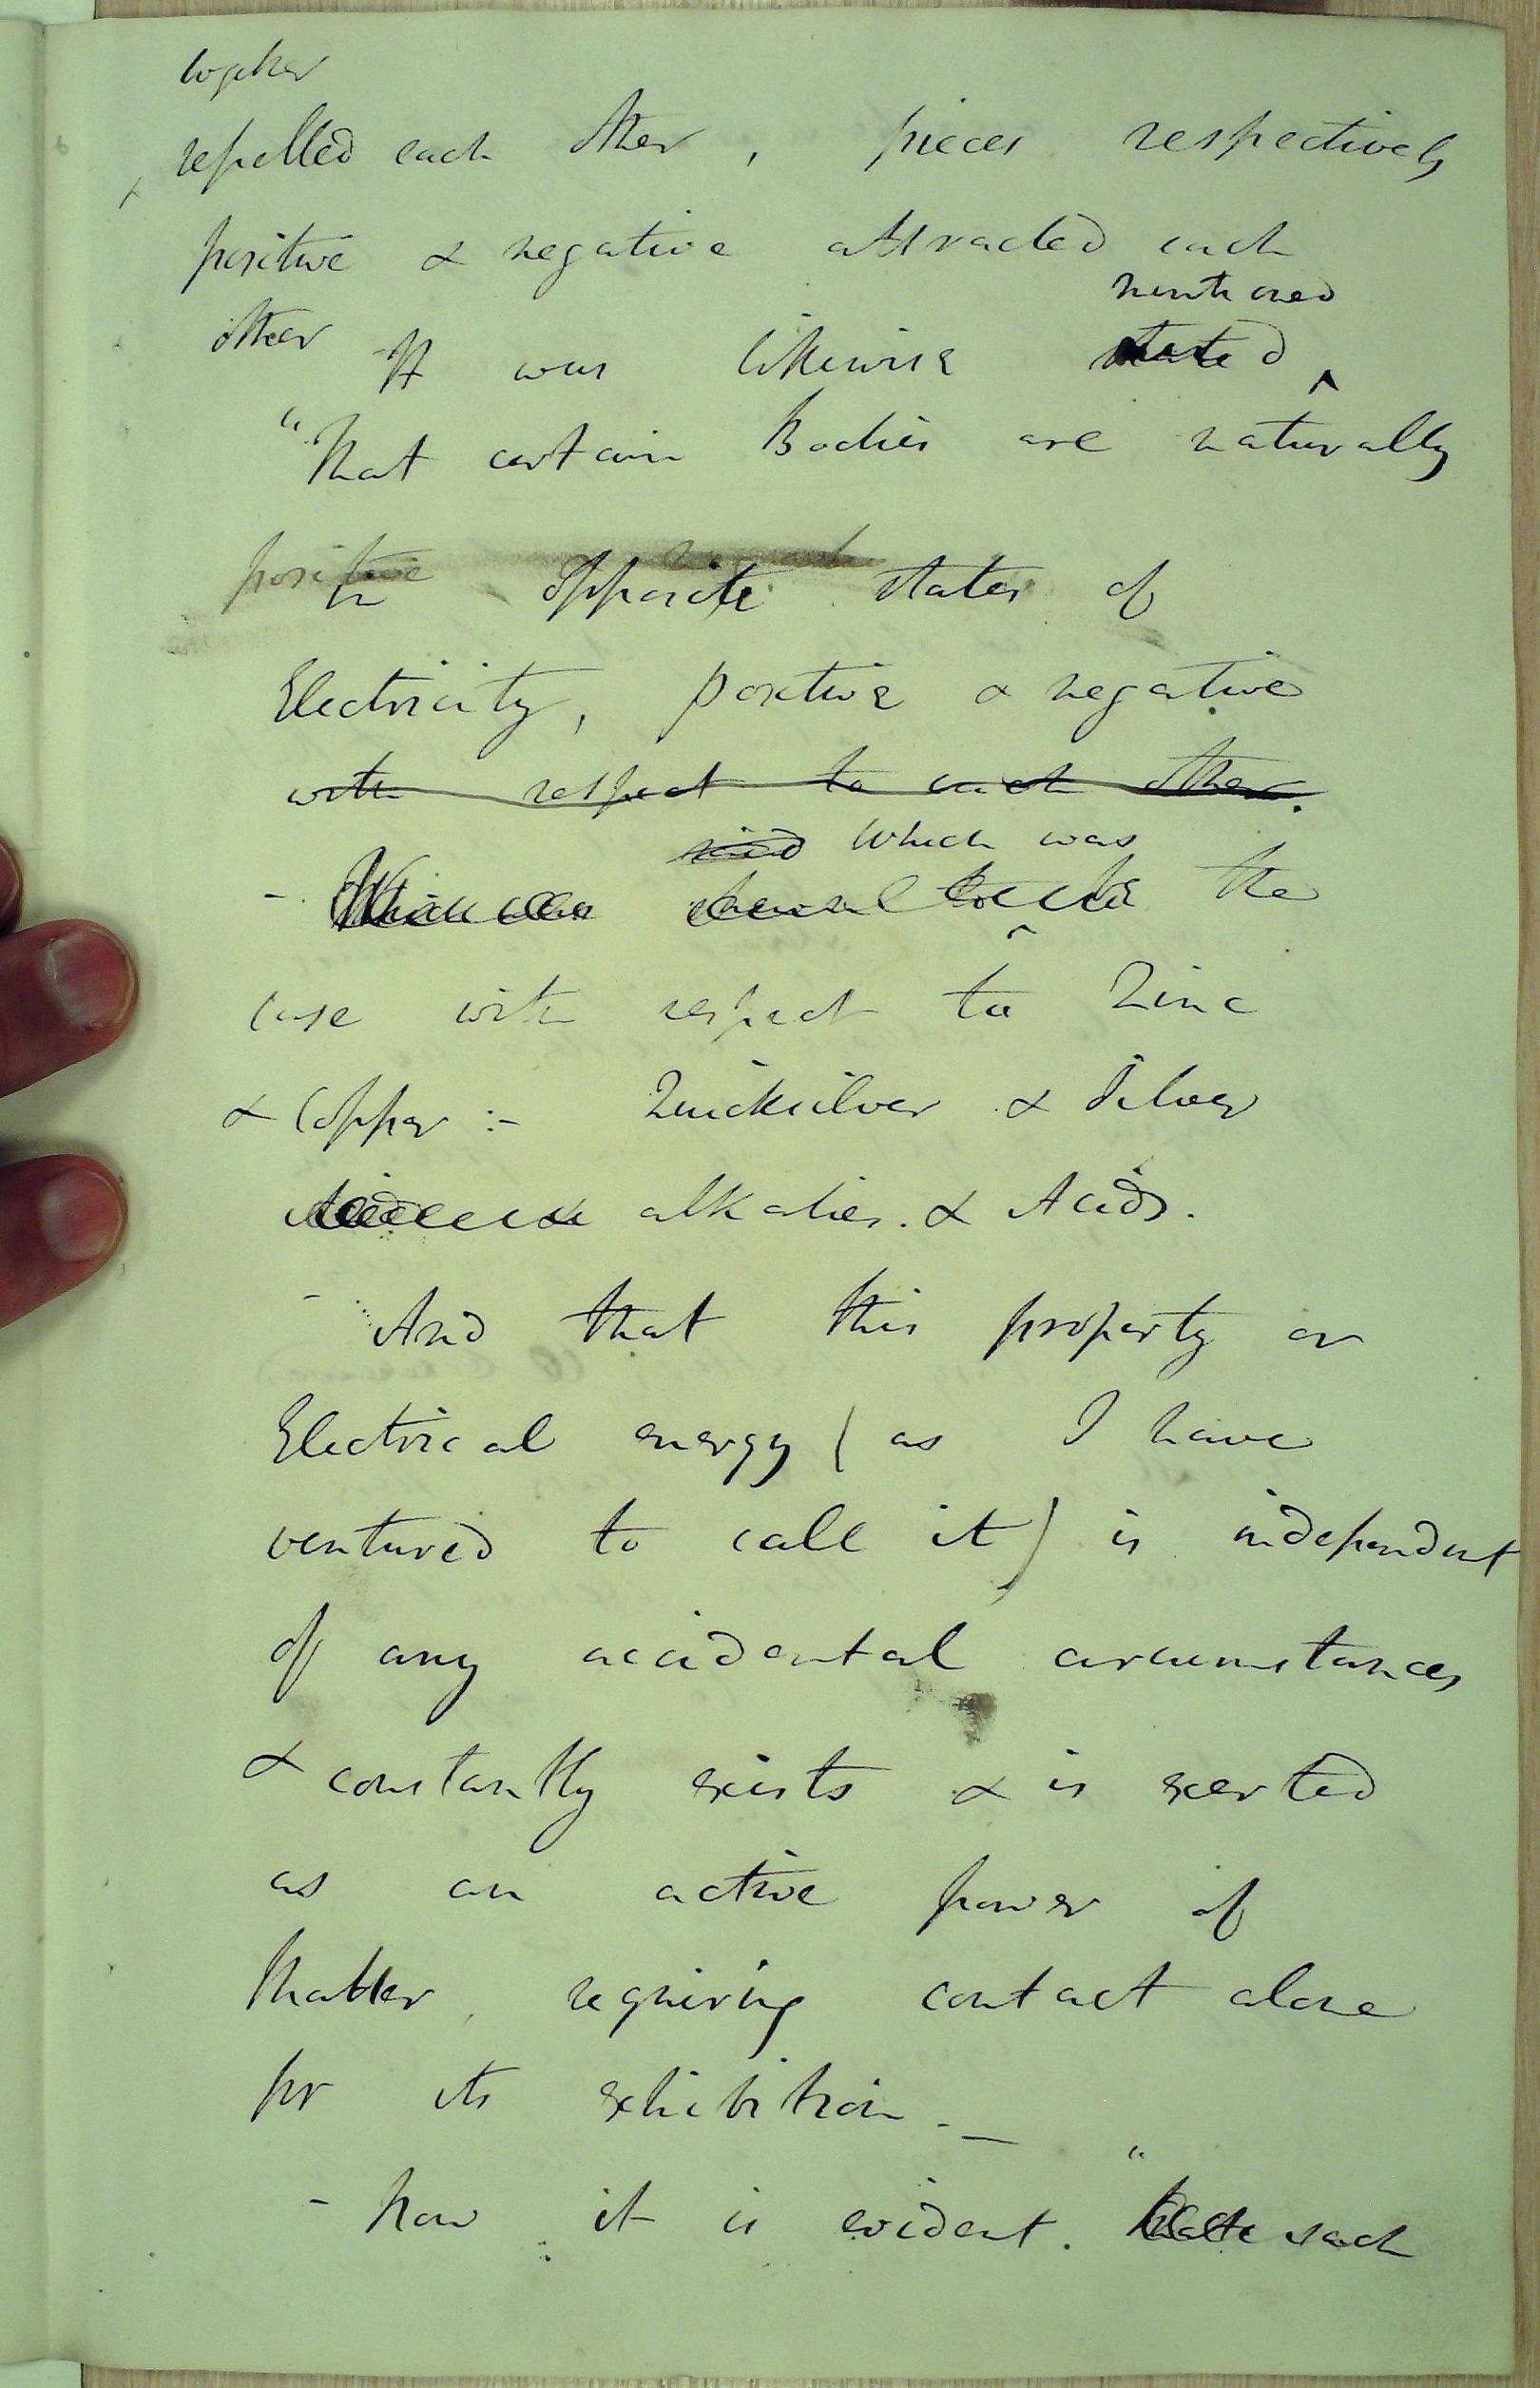 together
repelled each other, pieces respectively
positive & negative attracted each
mentioned
other - It was likewise stated ^
"That certain Bodies are naturally
positive in opposite states of
Electricity, positive & negative
with respect to each other.
said Which was
- Which was shewn to be the
case with respect to Zinc
& Copper :- Quicksilver & Silver
alkalies. & Acids.
- And that this property or
Electrical energy (as I have
ventured to call it) is independent
of any accidental circumstances
& constantly exists & is exerted
as an active power of
Matter, requiring contact alone
for its exhibition -_
- Now it is evident. " such